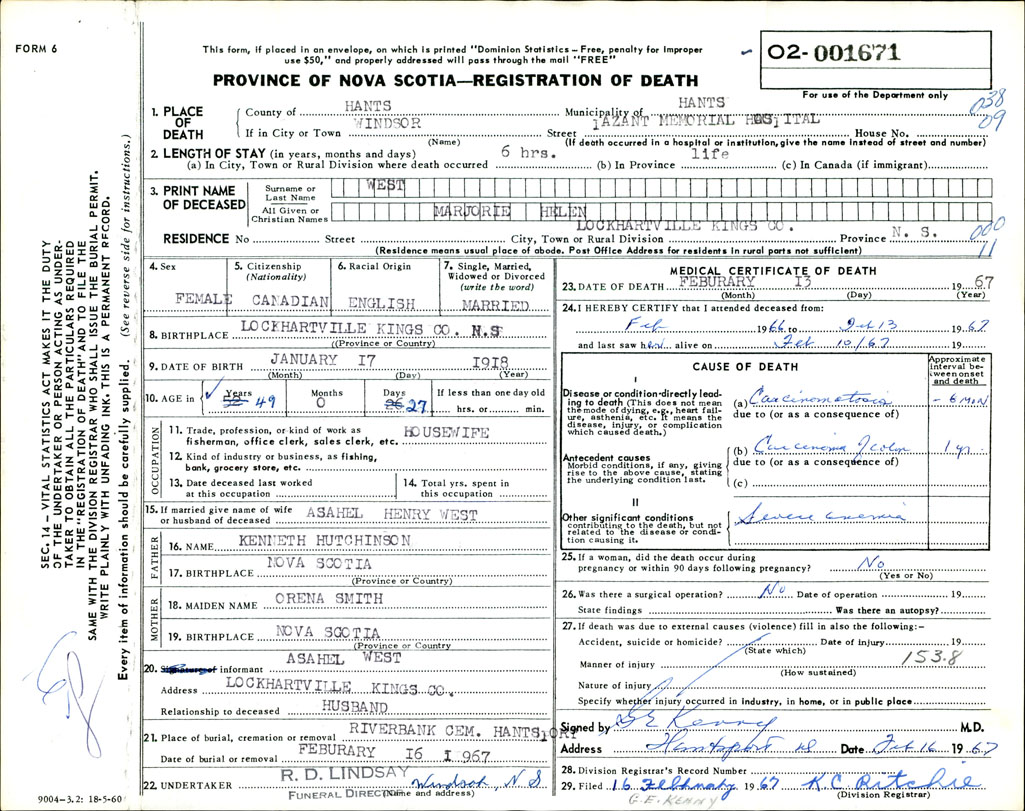 FORM 6
This form, if placed in an envelope, on which is printed "Dominion Statistics – Free, penalty for improper
use $50," and properly addressed will pass through the mail "FREE"
02-001671
For use of the Department only
PROVINCE OF NOVA SCOTIA—REGISTRATION OF DEATH
038
09
1. PLACE OF DEATH
County of HANTS Municipality of HANTS
If in City or Town WINDSOR Street MEMORIAL House No.
(Name) (If death occurred in a hospital or institution, give the name instead of street and number)
2. LENGTH OF STAY (in years, months and days) 6 hrs. life
(a) In City, Town or Rural Division where death occurred (b) In Province (c) In Canada (if immigrant)
3. PRINT NAME OF DECEASED
Surname or Last Name WEST
All Given or Christian Names MARJORIE HELEN
LOCKHARTVILLE KINGS CO. N. S. 000
RESIDENCE No Street City, Town or Rural Division Province 11
(Residence means usual place of abode. Post Office Address for residents in rural parts not sufficient)
4. Sex FEMALE
5. Citizenship (Nationality) CANADIAN
6. Racial Origin ENGLISH
7. Single, Married, Widowed or Divorced (write the word) MARRIED
8. BIRTHPLACE LOCKHARTVILLE KINGS CO. N.S
(Province or Country)
9. DATE OF BIRTH JANUARY 17 1918
(Month) (Day) (Year)
10. AGE in Years 49 Months 0 Days 26 27 If less than one day old
hrs. or min.
OCCUPATION
11. Trade, profession, or kind of work as HOUSEWIFE
fisherman, office clerk, sales clerk, etc.
12. Kind of industry or business, as fishing,
bank, grocery store, etc.
13. Date deceased last worked at this occupation
14. Total yrs. spent in this occupation
15. If married give name of wife or husband of deceased ASAHEL HENRY WEST
FATHER
16. NAME KENNETH HUTCHINSON
17. BIRTHPLACE NOVA SCOTIA
(Province or Country)
MOTHER
18. MAIDEN NAME ORENA SMITH
19. BIRTHPLACE NOVA SCOTIA
(Province or Country
20. Signature of informant ASAHEL WEST
Address LOCKHARTVILLE KINGS CO.
Relationship to deceased HUSBAND
21. Place of burial, cremation or removal RIVERBANK CEM. HANTSPORT
Date of burial or removal FEBURARY 16 1967
22. UNDERTAKER R. D. LINDSAY Windsor, N S
FUNERAL DIRECTOR (Name and address)
MEDICAL CERTIFICATE OF DEATH
23. DATE OF DEATH FEBURARY 13 1967
(Month) (Day) (Year)
24. I HEREBY CERTIFY that I attended deceased from:
Feb 1966 to Feb 13 1967
and last saw her alive on Feb 10/67 19
CAUSE OF DEATH
Approximate interval between onset and death
I
Disease or condition directly leading to death (This does not mean
the mode of dying, e.g., heart failure, asthenia, etc. It means the
disease, injury, or complication which caused death.)
(a) Carcinomatosis – 6 mon
due to (or as a consequence of)
(b) Carcinoma of colon 1 yr.
due to (or as a consequence of)
(c)
Antecedent causes
Morbid conditions, if any, giving
rise to the above cause, stating
the underlying condition last.
II
Other significant conditions
contributing to the death, but not
related to the disease or condition causing it.
Severe anemia
25. If a woman, did the death occur during
pregnancy or within 90 days following pregnancy? No
(Yes or No)
26. Was there a surgical operation? No Date of operation 19
State findings Was there an autopsy?
27. If death was due to external causes (violence) fill in also the following:–
Accident, suicide or homicide? Date of injury 19
(State which)
Manner of injury 153.8
(How sustained)
Nature of injury
Specify whether injury occurred in industry, in home, or in public place
Signed by G E Kenny M.D.
Address Hantsport NS Date Feb 16 1967
28. Division Registrar's Record Number
29. Filed 16 February 1967 K C Ritchie
G.E. KENNY (Division Registrar)
SEC. 14 – VITAL STATISTICS ACT MAKES IT THE DUTY
OF THE UNDERTAKER OR PERSON ACTING AS UNDER-
TAKER TO OBTAIN ALL THE PARTICULARS REQUIRED
IN THE "REGISTRATION OF DEATH" AND TO FILE THE
SAME WITH THE DIVISION REGISTRAR WHO SHALL ISSUE THE BURIAL PERMIT.
WRITE PLAINLY WITH UNFADING INK. THIS IS A PERMANENT RECORD.
Every item of information should be carefully supplied. (See reverse side for instructions.)
9004-3.2: 18-5-60